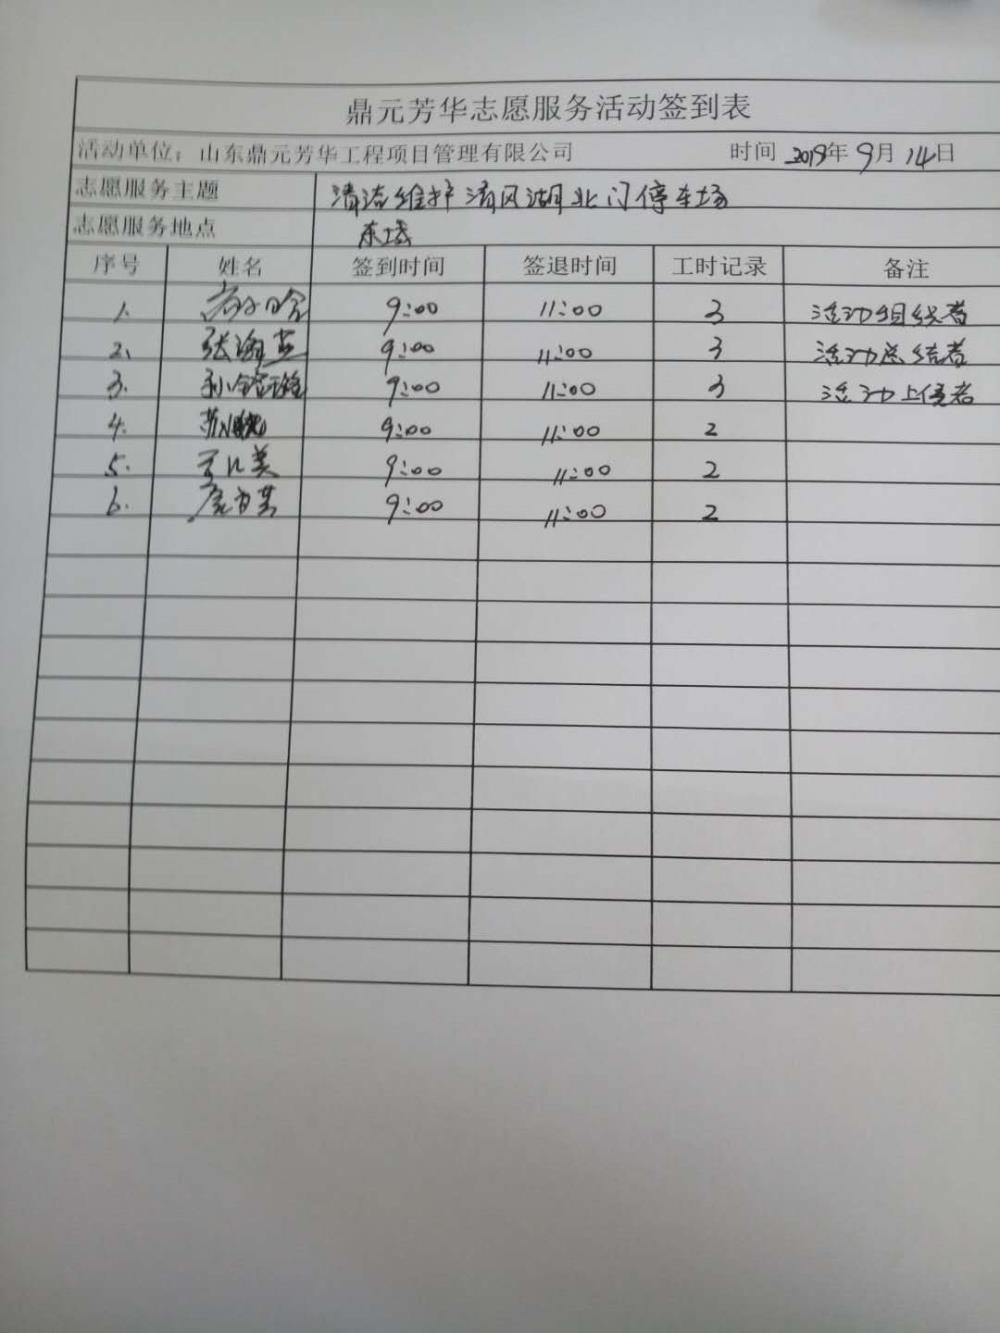 鼎元芳华志愿服务活动签到表
活动单位：山东鼎元芳华工程项目管理有限公司 时间 2019年9月14日
志愿服务主题 清洁维护清风湖北门停车场
志愿服务地点 东城
序号 姓名 签到时间 签退时间 工时记录 备注
1. 9:00 11:00 3 活动组织者
2、 张 9:00 11:00 3 活动总结者
3. 孙 9:00 11:00 3 活动上传者
4. 苏 9:00 11:00 2
5. 9:00 11:00 2
6. 9:00 11:00 2